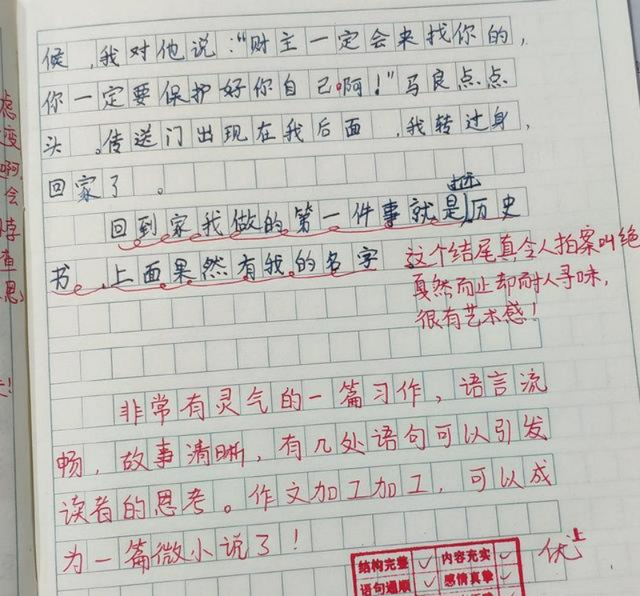 候，我对他说："财主一定会来找你的，
你一定要保护好你自己啊！"马良点点
头。传送门出现在我后面，我转过身，
回家了。
回到家我做的第一件事就是历史
书，上面果然有我的名字
这个结尾真令人拍案叫绝
戛然而止却耐人寻味，
很有艺术感！
非常有灵气的一篇习作，语言流
畅，故事清晰，有几处语句可以引发
读者的思考。作文加工加工，可以成
为一篇微小说了！
优上
结构完整 ✓ 内容充实 ✓
语句通顺 ✓ 感情真挚 ✓